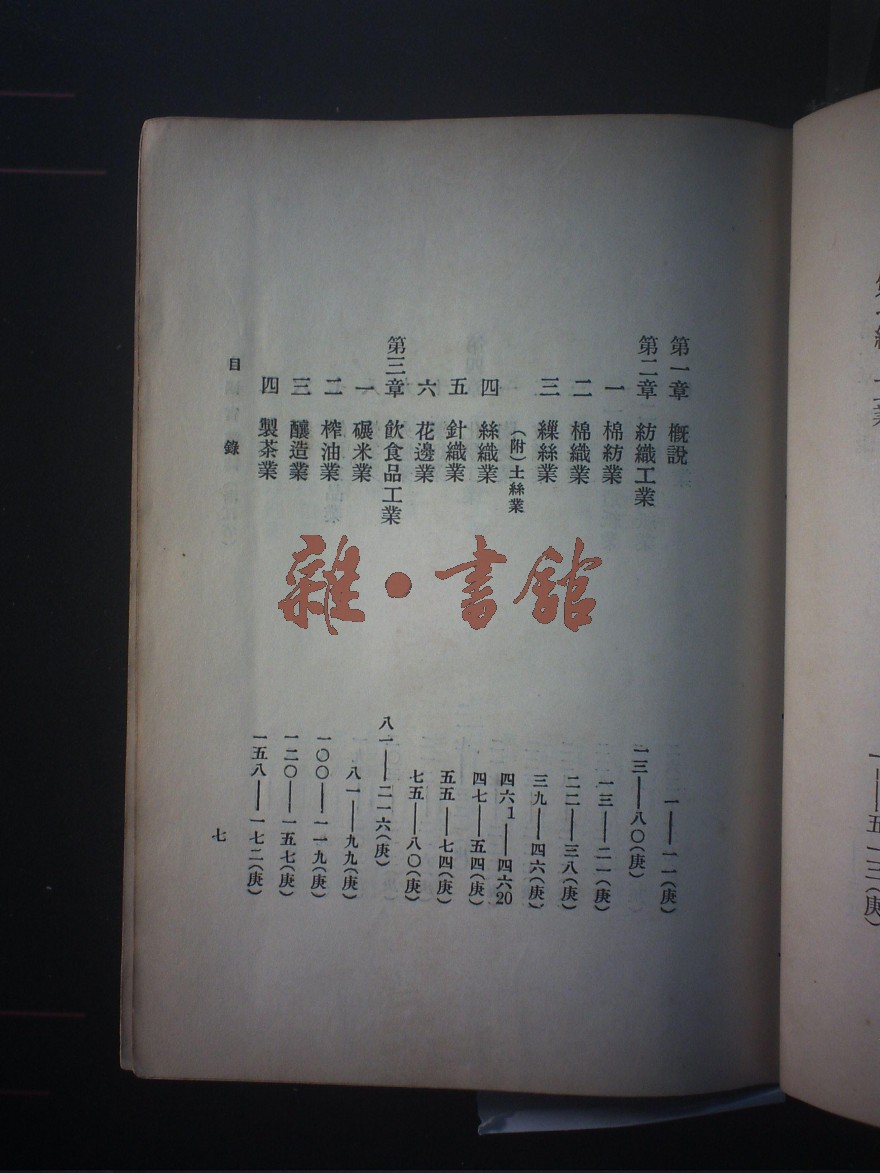 第一章 概說 一——一一(庚)
第二章 紡織工業 一三——八〇(庚)
一 棉紡業 一三——二一(庚)
二 棉織業 二二——三八(庚)
三 繅絲業 三九——四六(庚)
(附)土絲業 四六1——四六20
四 絲織業 四七——五四(庚)
五 針織業 五五——七四(庚)
六 花邊業 七五——八〇(庚)
第三章 飲食品工業 八一——二一六(庚)
一 碾米業 八一——九九(庚)
二 榨油業 一〇〇——一一九(庚)
三 釀造業 一二〇——一五七(庚)
四 製茶業 一五八——一七二(庚)
目錄
七
雜·書館